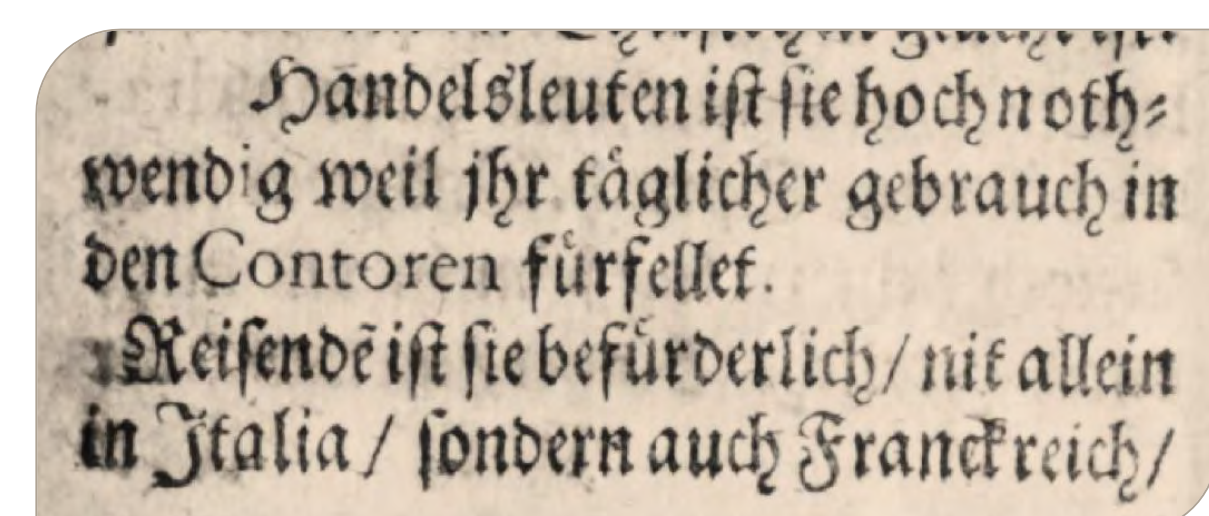 Handelsleuten ist sie hoch noth⸗
wendig weil jhr täglicher gebrauch in
den Contoren fürfellet.
Reisendẽ ist sie befürderlich / nit allein
in Jtalia / sondern auch Franckreich /